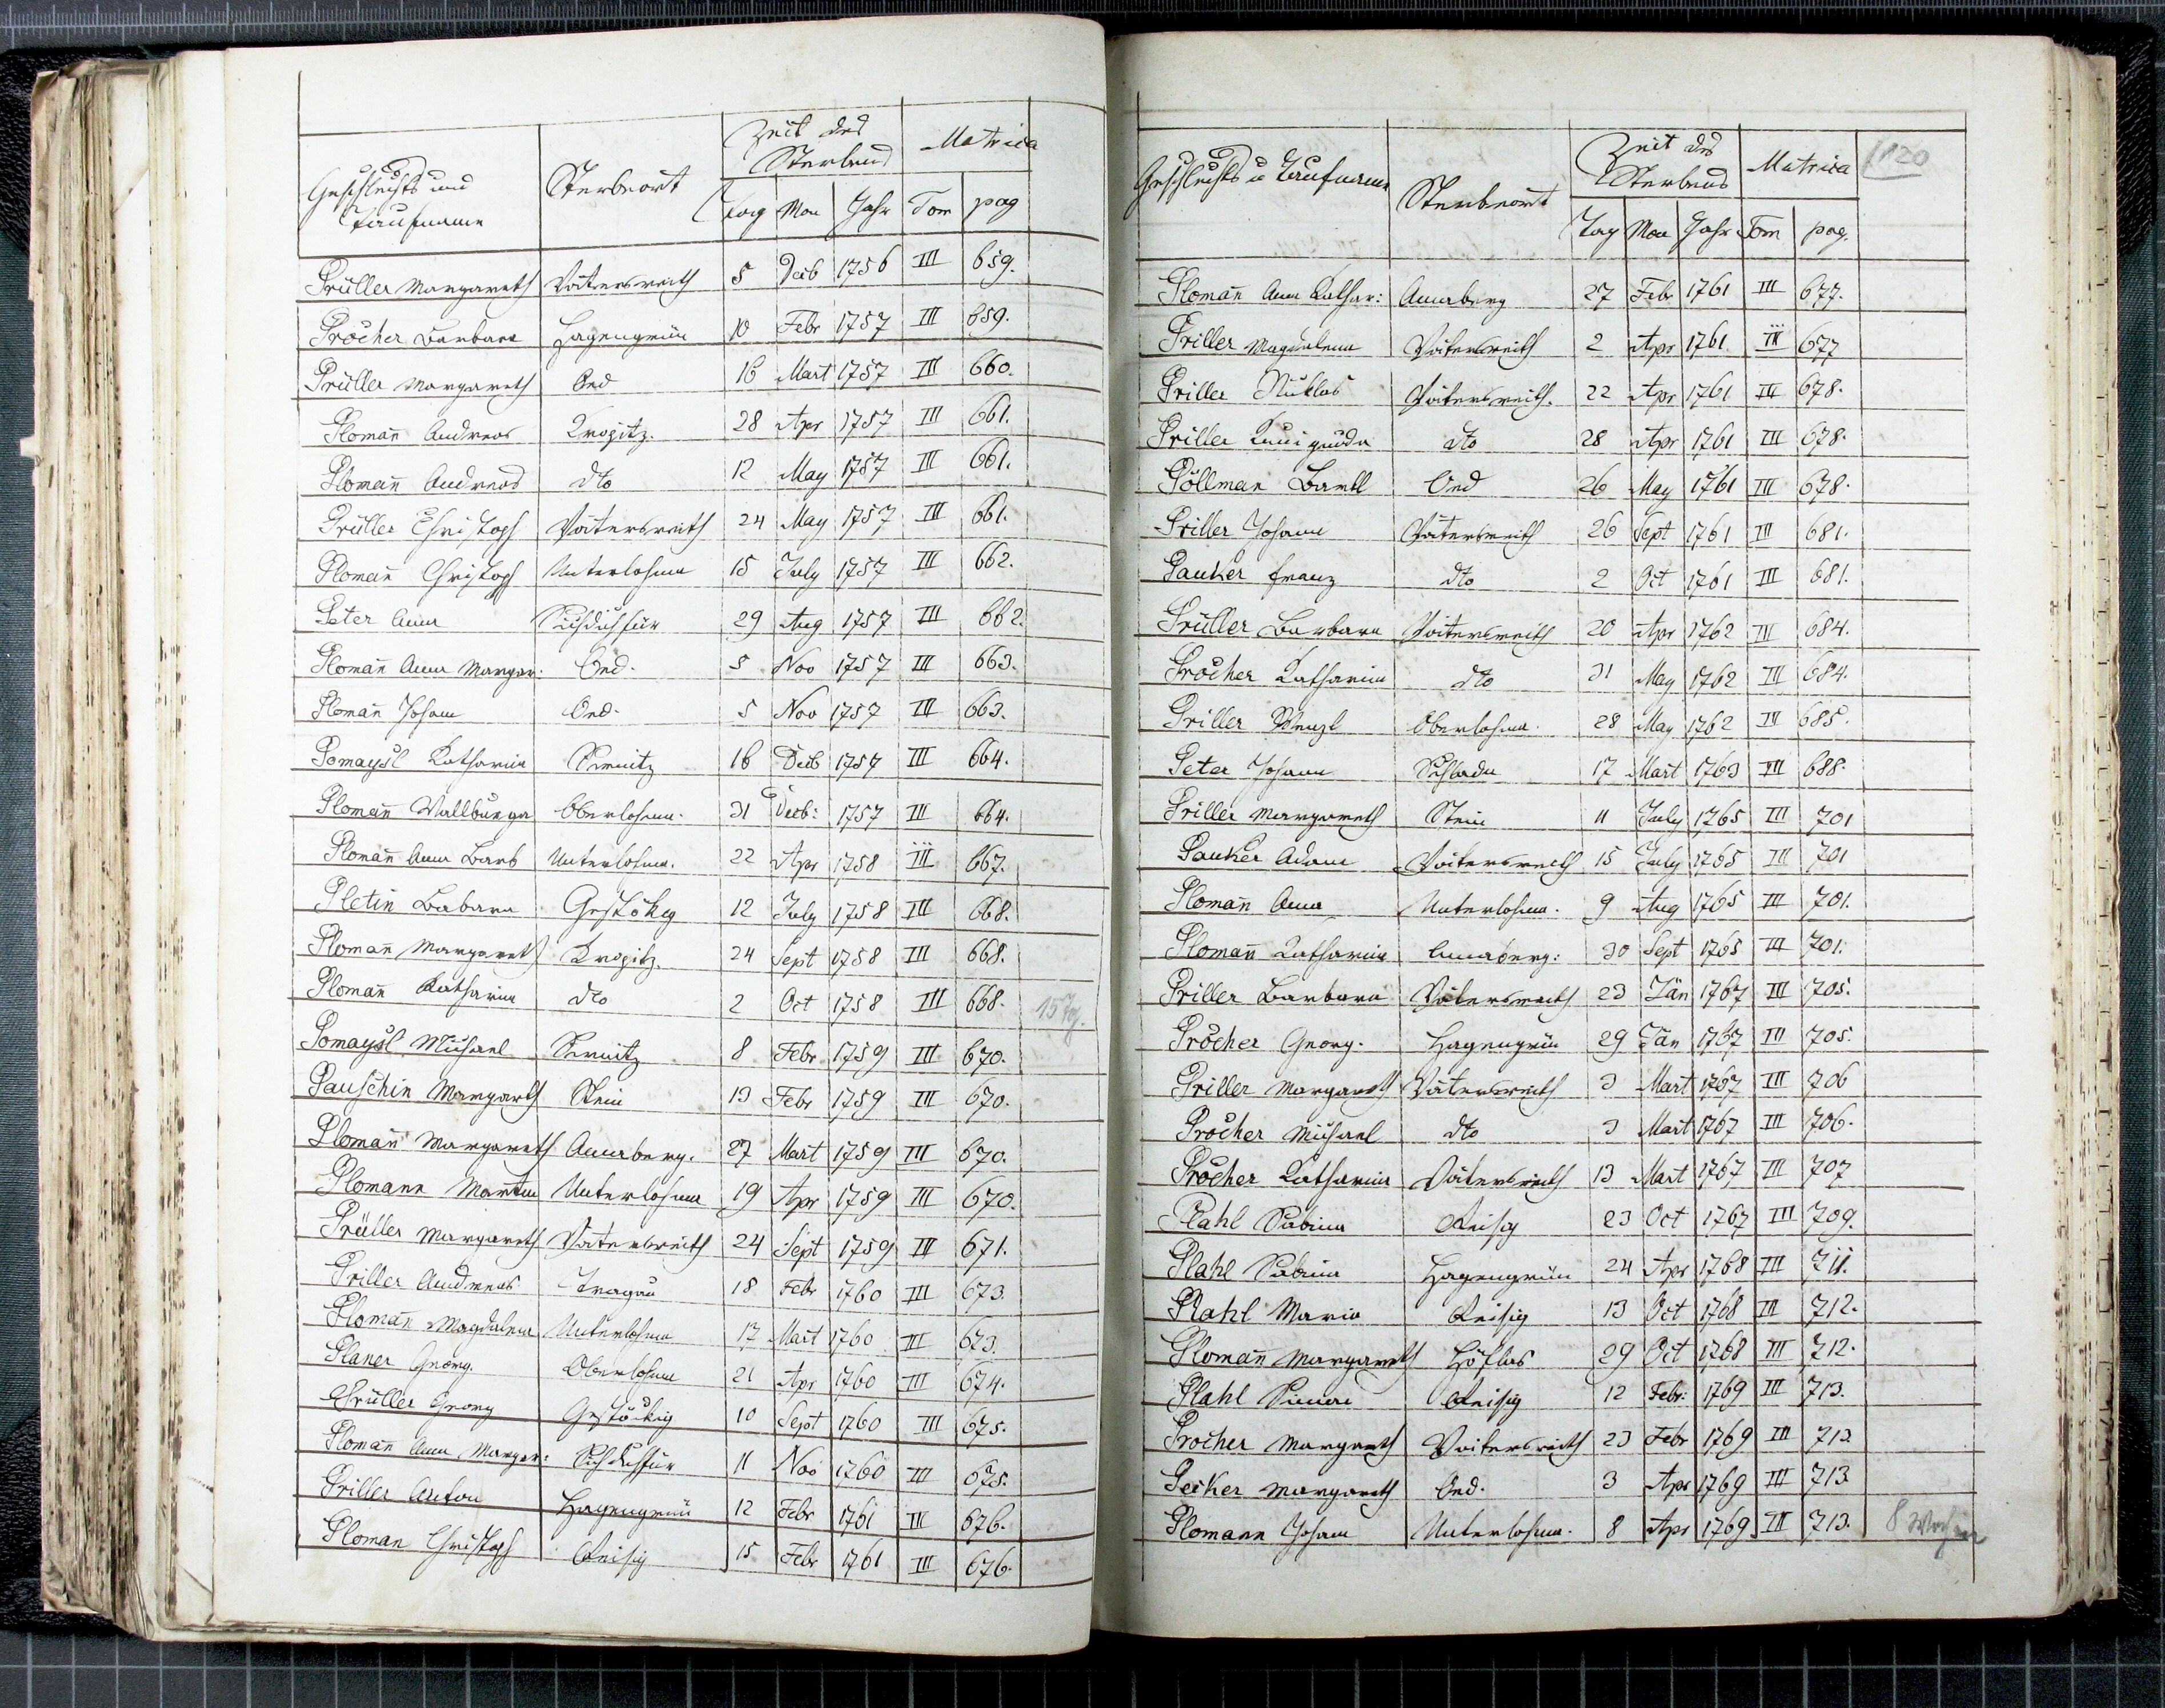 Geschlechts und Taufname Sterbeort Zeit des Sterbens Matrica
Tag Mon Jahr Tom pag
Prüller Margareth Voitersreith 5 Decb 1756 III 659.
Pröcher Barbara Hagengrün 10 Febr 1757 III 659.
Prüller Margareth Oed 16 Mart 1757 III 660.
Plomañ Andreas Krogitz. 28 Apr 1757 III 661.
Plomañ Andreas dto 12 May 1757 III 661.
Prüller Christoph Voitersreith 24 May 1757 III 661.
Plomañ Christoph Unterlohma 15 July 1757 III 662.
Peter Anna 29 Aug 1757 III 662.
Plomañ Anna Margar: Oed. 5 Nov 1757 III 663.
Plomañ Johann Oed. 5 Nov 1757 III 663.
Pomaysl Katharina Sirmitz 16 Decb 1757 III 664.
Plomañ Wallburga Oberlohma. 31 Decb: 1757 III 664.
Plomañ Anna Barb Unterlohma. 22 Apr 1758 III 667.
Pletin Babara Gestökeg 12 July 1758 III 668.
Plomañ Margareth Krogitz. 24 Sept 1758 III 668.
Plomañ Katharina dto 2 Oct 1758 III 668. 15 Tg.
Pomaysl Michael Sirmitz 8 Febr 1759 III 670.
Pauschin Margarth Stein 13 Febr 1759 III 670.
Plomañ Margareth Annaberg. 27 Mart 1759 III 670.
Plomann Martin Unterlohma 19 Apr 1759 III 670.
Prüller Margareth Voitersreith 24 Sept 1759 III 671.
Priller Andreas Tragau 18 Febr 1760 III 673.
Plomañ Magdalena Unterlohma 17 Mart 1760 III 673.
Planer Georg. Oberlohma 21 Apr 1760 III 674.
Prüller Georg Gestöckig 10 Sept 1760 III 675.
Plomañ Anna Margar: 11 Nov 1760 III 675.
Priller Anton Hagengrün 12 Febr 1761 III 676.
Ploman Christoph Reisig 15 Febr 1761 III 676.
Geschlechts u Taufname Sterbeort Zeit des Sterbens Matrica 120
Tag Mon Jahr Tom pag.
Plomañ Anna Kathar: Annaberg 27 Febr 1761 III 677.
Priller Magdalena Voitersreith 2 Apr 1761 III 677
Priller Niklas Voitersreith. 22 Apr 1761 III 678.
Priller Kunigunda dto 28 Apr 1761 III 678.
Pöllman Bartl Oed 26 May 1761 III 678.
Priller Johann Voitersreith 26 Sept 1761 III 681.
Pauker Franz dto 2 Oct 1761 III 681.
Prüller Barbara Voitersreith 20 Apr 1762 III 684.
Pröcher Katharina dto 31 May 1762 III 684.
Priller Wenzl Oberlohma. 28 May 1762 III 685.
Peter Johann Schlada 17 Mart 1763 III 688.
Priller Margareth Stein 11 July 1765 III 701
Pauker Adam Voitersreith 15 July 1765 III 701
Plomañ Anna Unterlohma. 9 Aug 1765 III 701.
Plomañ Katharina Annaberg: 30 Sept 1765 III 701.
Priller Barbara Voitersreith 23 Jän 1767 III 705.
Pröcher Georg. Hagengrün 29 Jän 1767 III 705.
Priller Margareth Voitersreith 3 Mart 1767 III 706
Pröcher Michael dto 3 Mart 1767 III 706.
Pröcher Katharina Voitersreith 13 Mart 1767 III 707
Plahl Sabina Reisig 23 Oct 1767 III 709.
Plahl Sabina Hagengrün 24 Apr 1768 III 711.
Plahl Maria Reisig 13 Oct 1768 III 712.
Plomañ Margareth Höflas 29 Oct 1768 III 712.
Plahl Simon Reisig 12 Febr: 1769 III 713.
Procher Margareth Voitersreith 23 Febr 1769 III 713.
Peiker Margareth Oed. 3 Apr 1769 III 713
Plomann Johann Unterlohma. 8 Apr 1769 III 713. 8 Wochen